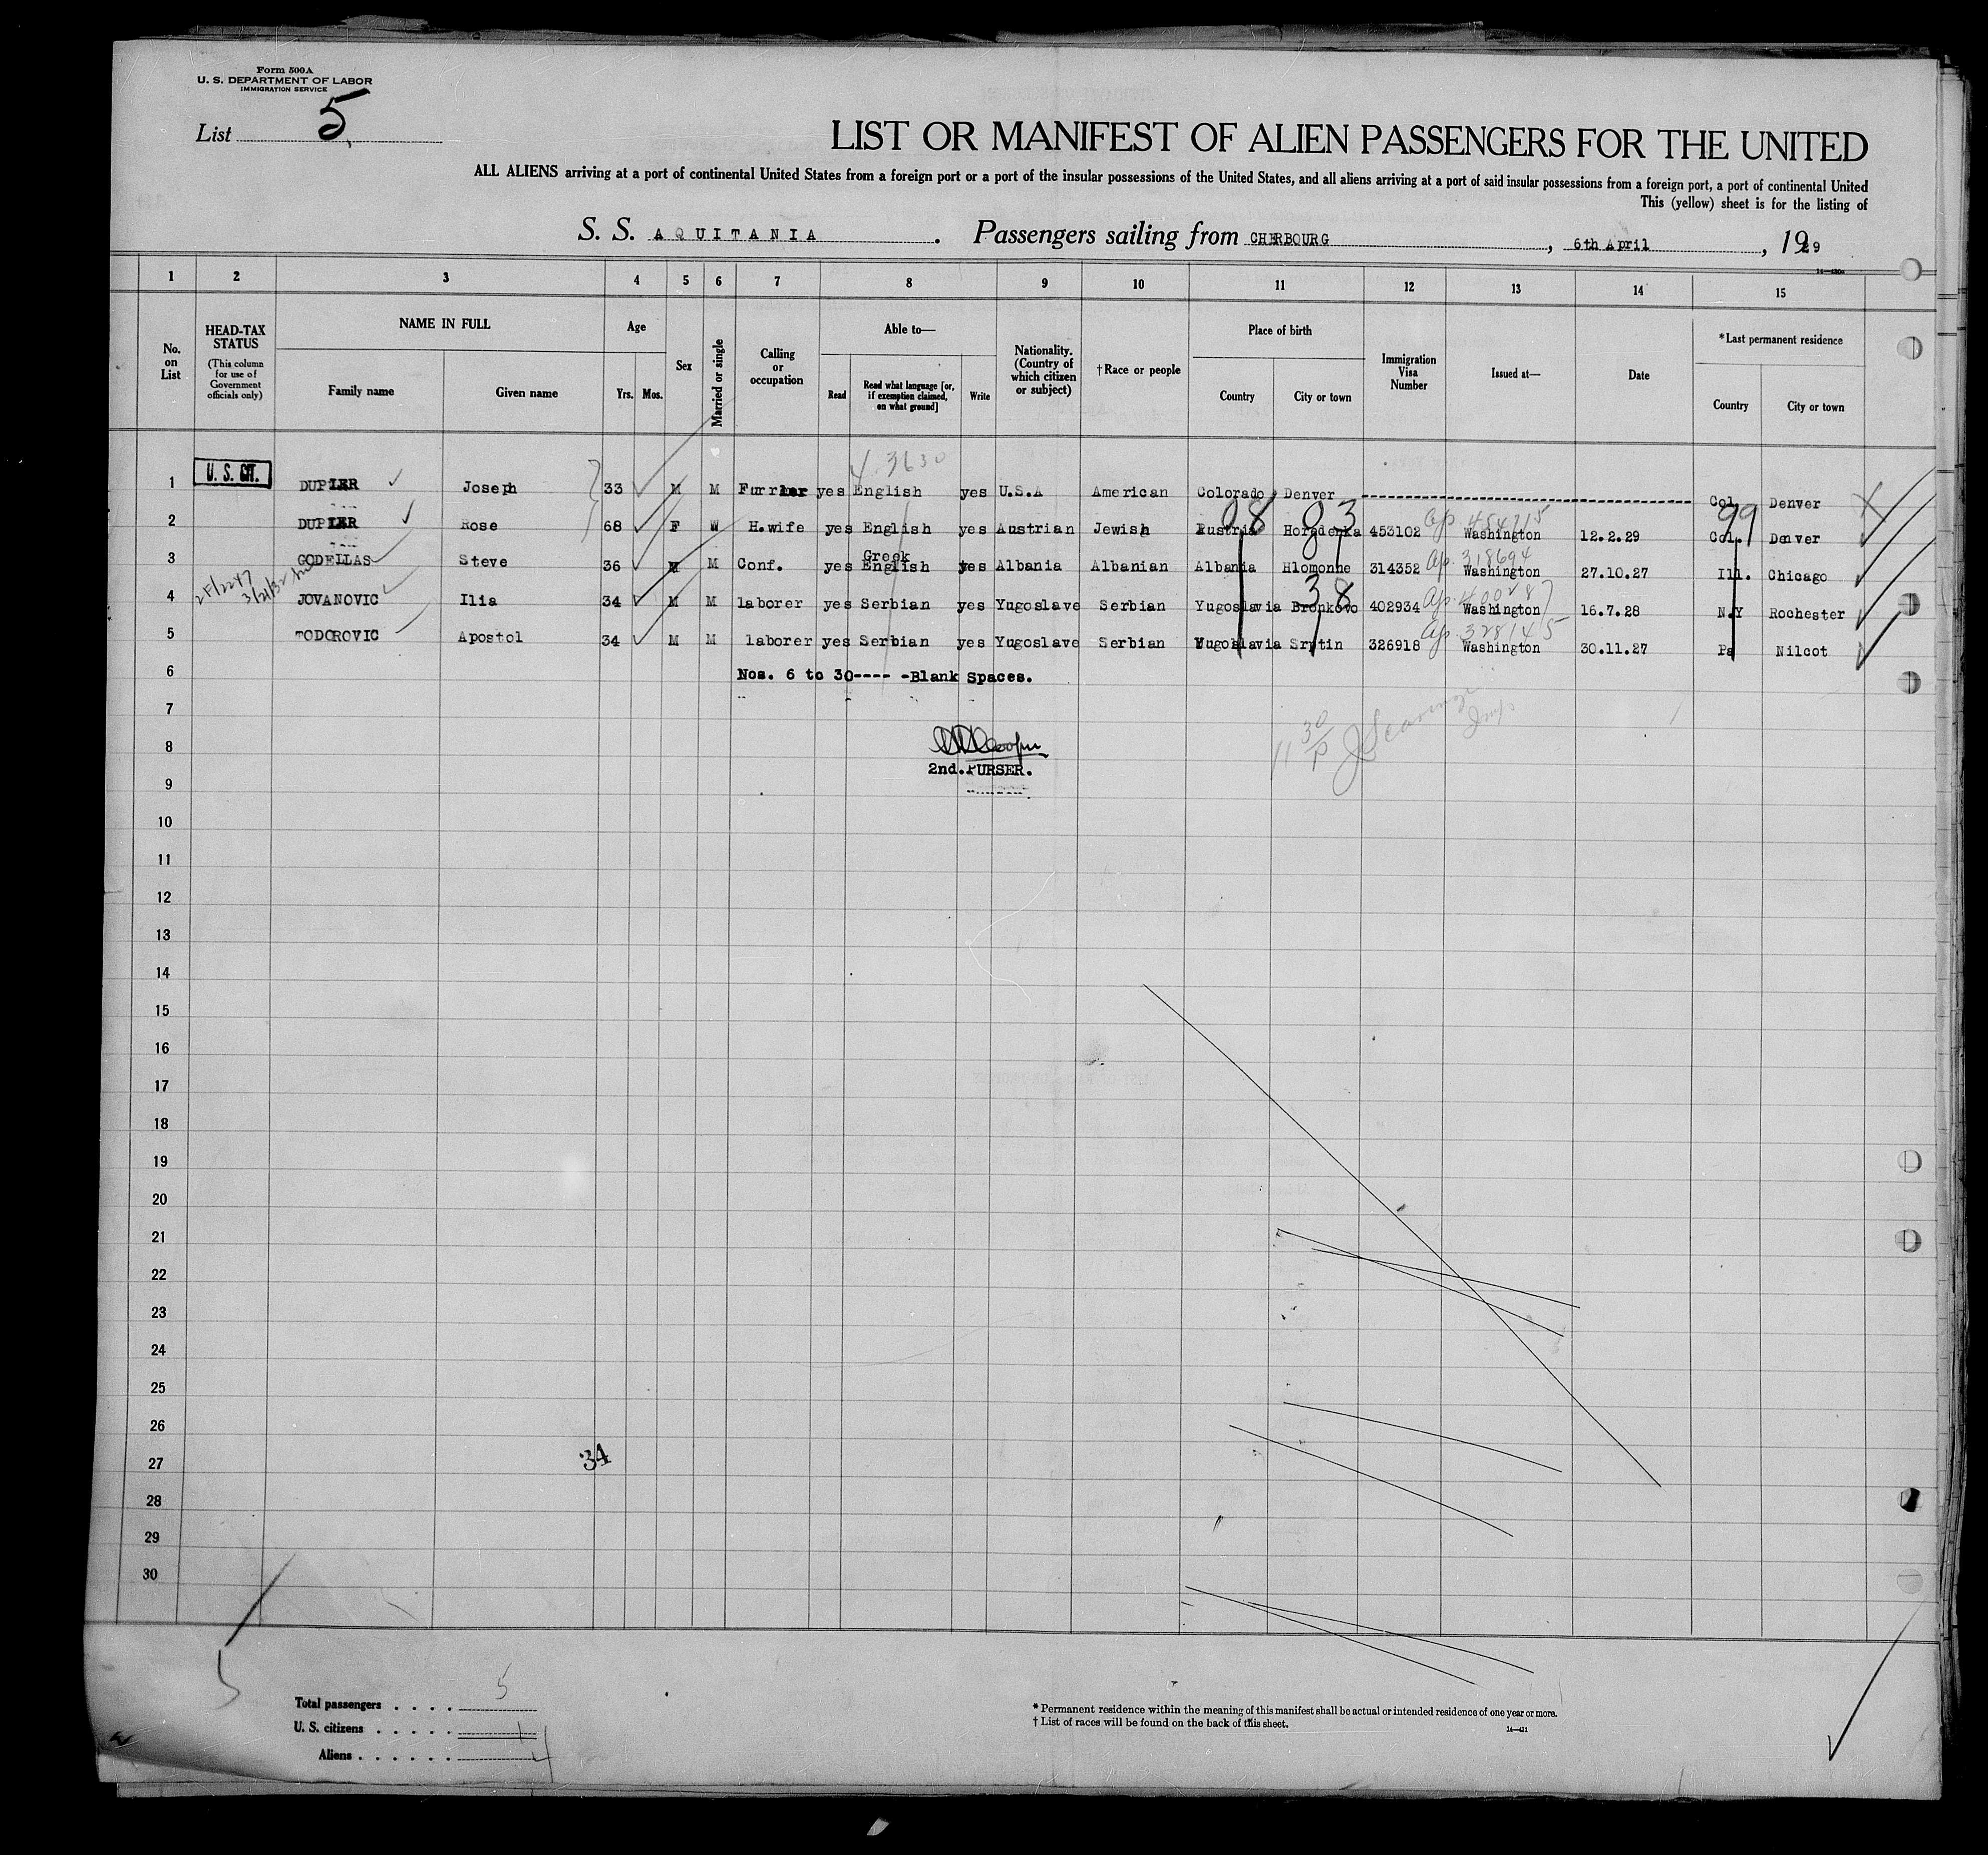 Form 500A
U. S. DEPARTMENT OF LABOR
IMMIGRATION SERVICE
List 5
LIST OR MANIFEST OF ALIEN PASSENGERS FOR THE UNITED
ALL ALIENS arriving at a port of continental United States from a foreign port or a port of the insular possessions of the United States, and all aliens arriving at a port of said insular possessions from a foreign port, a port of continental United
This (yellow) sheet is for the listing of
S. S. AQUITANIA. Passengers sailing from CHERBOURG, 6th April, 1929
1 2 3 4 5 6 7 8 9 10 11 12 13 14 15
No. on List
HEAD-TAX STATUS
(This column for use of Government officials only)
NAME IN FULL
Family name Given name
Age
Yrs. Mos.
Sex
Married or single
Calling or occupation
Able to—
Read
Read what language [or, if exemption claimed, on what ground]
Write
Nationality. (Country of which citizen or subject)
†Race or people
Place of birth
Country City or town
Immigration Visa Number
Issued at—
Date
*Last permanent residence
Country City or town
4.3630
1 U. S. CIT. DUPLER Joseph 33 M M Furrier yes English yes U.S.A American Colorado Denver Col. Denver
2 DUPLER Rose 68 F W H.wife yes English yes Austrian Jewish Austria Horodenka 453102 Washington 12.2.29 Col. Denver
08 03 99
3 GODELLAS Steve 36 M M Conf. yes Greek English yes Albania Albanian Albania Hlomonhe 314352 Ap. 318694 Washington 27.10.27 Ill. Chicago
4 JOVANOVIC Ilia 34 M M laborer yes Serbian yes Yugoslave Serbian Yugoslavia Bronkovo 402934 Washington 16.7.28 N.Y Rochester
38
5 TODOROVIC Apostol 34 M M laborer yes Serbian yes Yugoslave Serbian Yugoslavia Srptin 326918 Ap. 328145 Washington 30.11.27 Pa Nilcot
6 Nos. 6 to 30---- -Blank Spaces.
7
8
2nd. PURSER.
9
10
11
12
13
14
15
16
17
18
19
20
21
22
23
24
25
26
27
34
28
29
30
Total passengers . . . . 5
U. S. citizens . . . . . 1
Aliens . . . . . . 4
* Permanent residence within the meaning of this manifest shall be actual or intended residence of one year or more.
† List of races will be found on the back of this sheet.
14—421